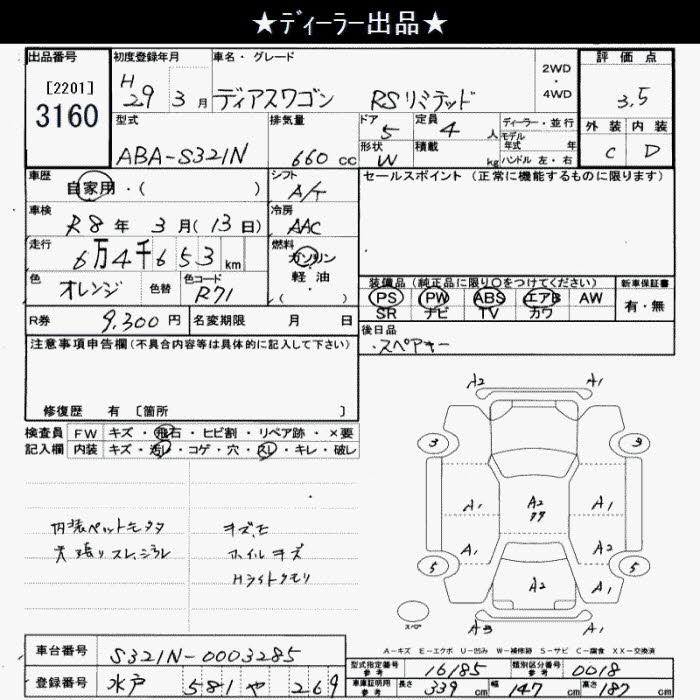 ★ディーラー出品★
出品番号 初度登録年月 車名・グレード 2WD・4WD 評価点
[2201]
3160
H29 3月 ディアスワゴン RSリミテッド 3.5
型式 排気量 ドア 5 定員 4人 ディーラー・並行 外装 内装
モデル年式 年
ABA-S321N 660cc 形状 W 積載 kg ハンドル 左・右 C D
車歴 シフト セールスポイント (正常に機能するものに限ります)
自家用・( ) A/T
車検 冷房
R8年 3月(13日) AAC
走行 燃料
6万4千653km ガソリン
軽・油
・( )
色 色替 色コード 装備品 (純正品に限り○をつけてください) 新車保証書
オレンジ R71 PS PW ABS エアB AW 有・無
SR ナビ TV カワ
R券 9,300円 名変期限 月 日 後日品
注意事項申告欄(不具合内容等は具体的に記入して下さい) ・スペアキー
修復歴 有 〔箇所 〕
検査員 FW キズ・飛石・ヒビ割・リペア跡・×要
記入欄 内装 キズ・汚レ・コゲ・穴・スレ・キレ・破レ
A2 A1
3 3
A1 A2 A1
A1 A2
5 A2 A1 5
スペア A3 A1
キズ.モ
ホイルキズ
Hライトクモリ
A-キズ E-エクボ U-凹み W-補修跡 S-サビ C-腐食 XX-交換済
車台番号 S321N-0003285 型式指定番号 参考 16185 類別区分番号 参考 0018
登録番号 水戸 581 や 269 車庫証明用 参考 長さ 339cm 幅 147cm 高さ 187cm